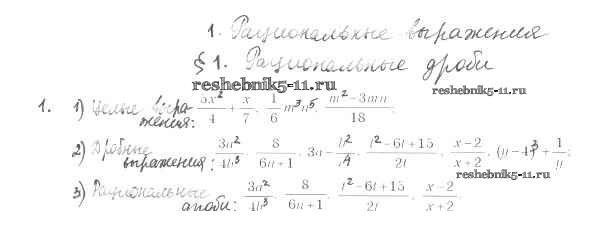 1. Рациональные выражения
§ 1. Рациональные дроби
reshebnik5-11.ru reshebnik5-11.ru
1. 1) Целые выражения: 5x²/4 + x/7, 1/6 m³n⁵, (m² − 3mn)/18;
2) Дробные выражения: 3a²/4b³, 8/(6n+1), (t² − 6t + 15)/2t, (x − 2)/(x + 2),
reshebnik5-11.ru
3) Рациональные дроби: 3a²/4b³, 8/(6n+1), (t² − 6t + 15)/2t, (x − 2)/(x + 2).